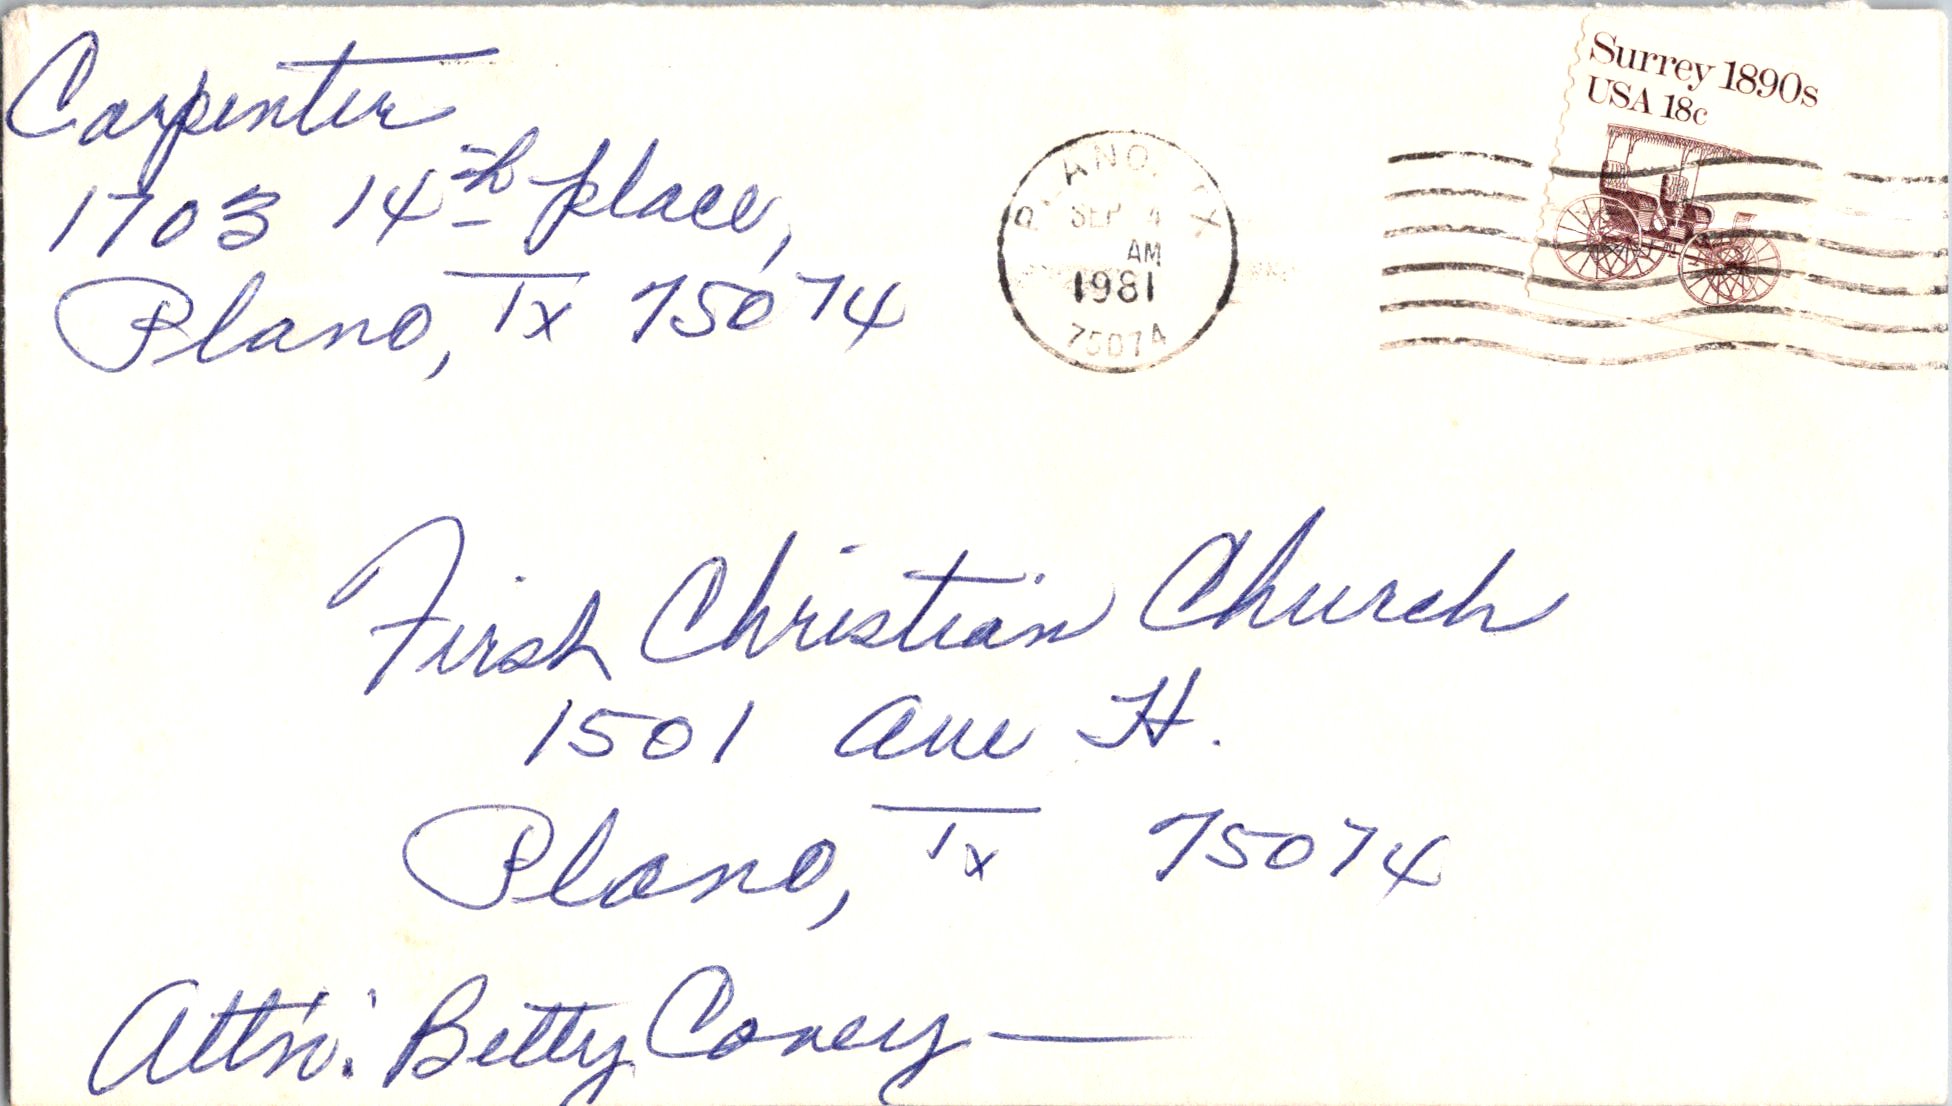 Carpenter
1703 14th place,
Plano, Tx 75074
PLANO, TX
SEP 4
AM
1981
75074
Surrey 1890s
USA 18c
First Christian Church
1501 Ave H.
Plano, Tx 75074
Att'n: Betty Coney